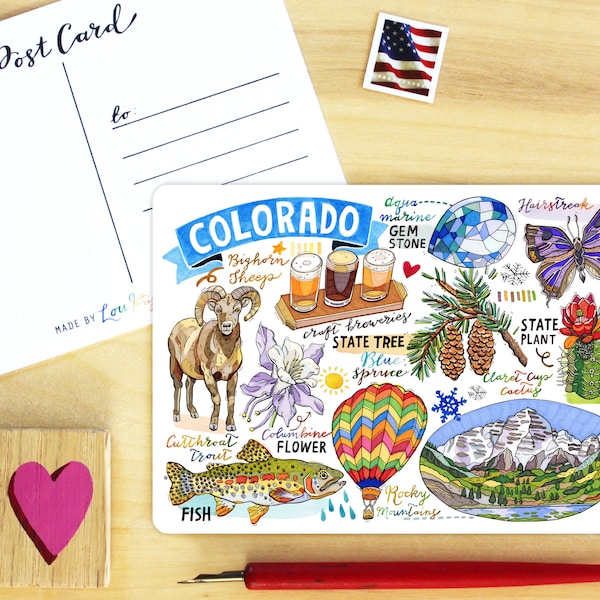 Post Card
to:
MADE BY Lou
COLORADO
Bighorn
Sheep
craft breweries
aqua
marine
GEM
STONE
Hairstreak
STATE TREE
Blue
spruce
STATE
PLANT
Claret Cup
Cactus
Columbine
FLOWER
Cutthroat
trout
FISH
Rocky
Mountains